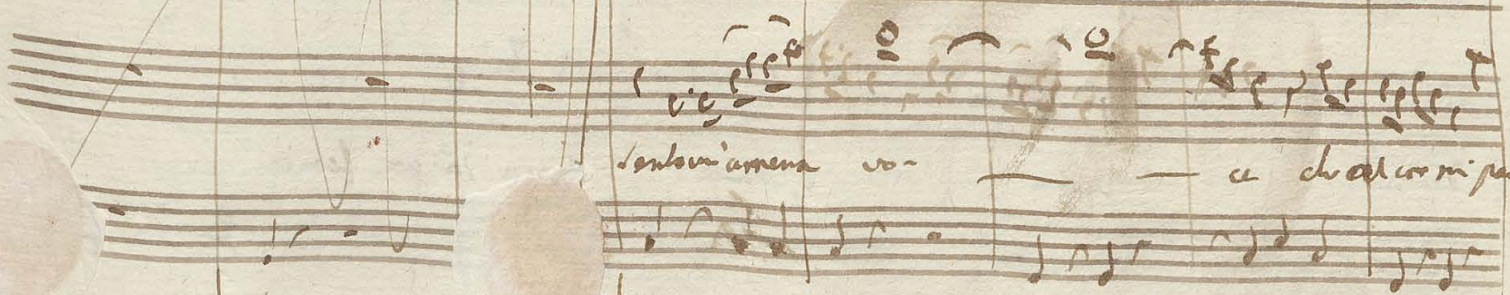 sento un' amena vo- ce che al cor mi pa